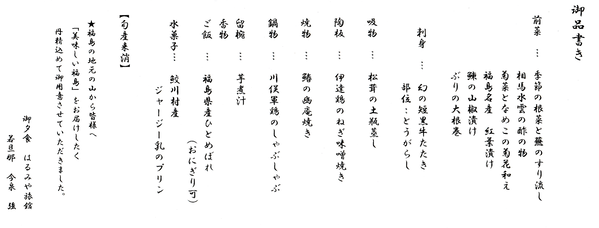 御品書き
前菜 … 季節の根菜と蕪のすり流し
相馬水雲の酢の物
菊菜となめこの菊花和え
福島名産 紅葉漬け
鰊の山椒漬け
ぶりの大根巻
刺身 … 幻の短黒牛たたき
部位:とうがらし
吸物 … 松茸の土瓶蒸し
陶板 … 伊達鶏のねぎ味噌焼き
焼物 … 鰆の幽庵焼き
鍋物 … 川俣軍鶏のしゃぶしゃぶ
留椀 … 芋煮汁
香物
ご飯 … 福島県産ひとめぼれ
(おにぎり可)
水菓子… 鮫川村産
ジャージー乳のプリン
【旬産来消】
★福島の地元の山から皆様へ
「美味しい福島」をお届けしたく
丹精込めて御用意させていただきました。
御夕食 はるみや旅館
若旦那 今泉 強